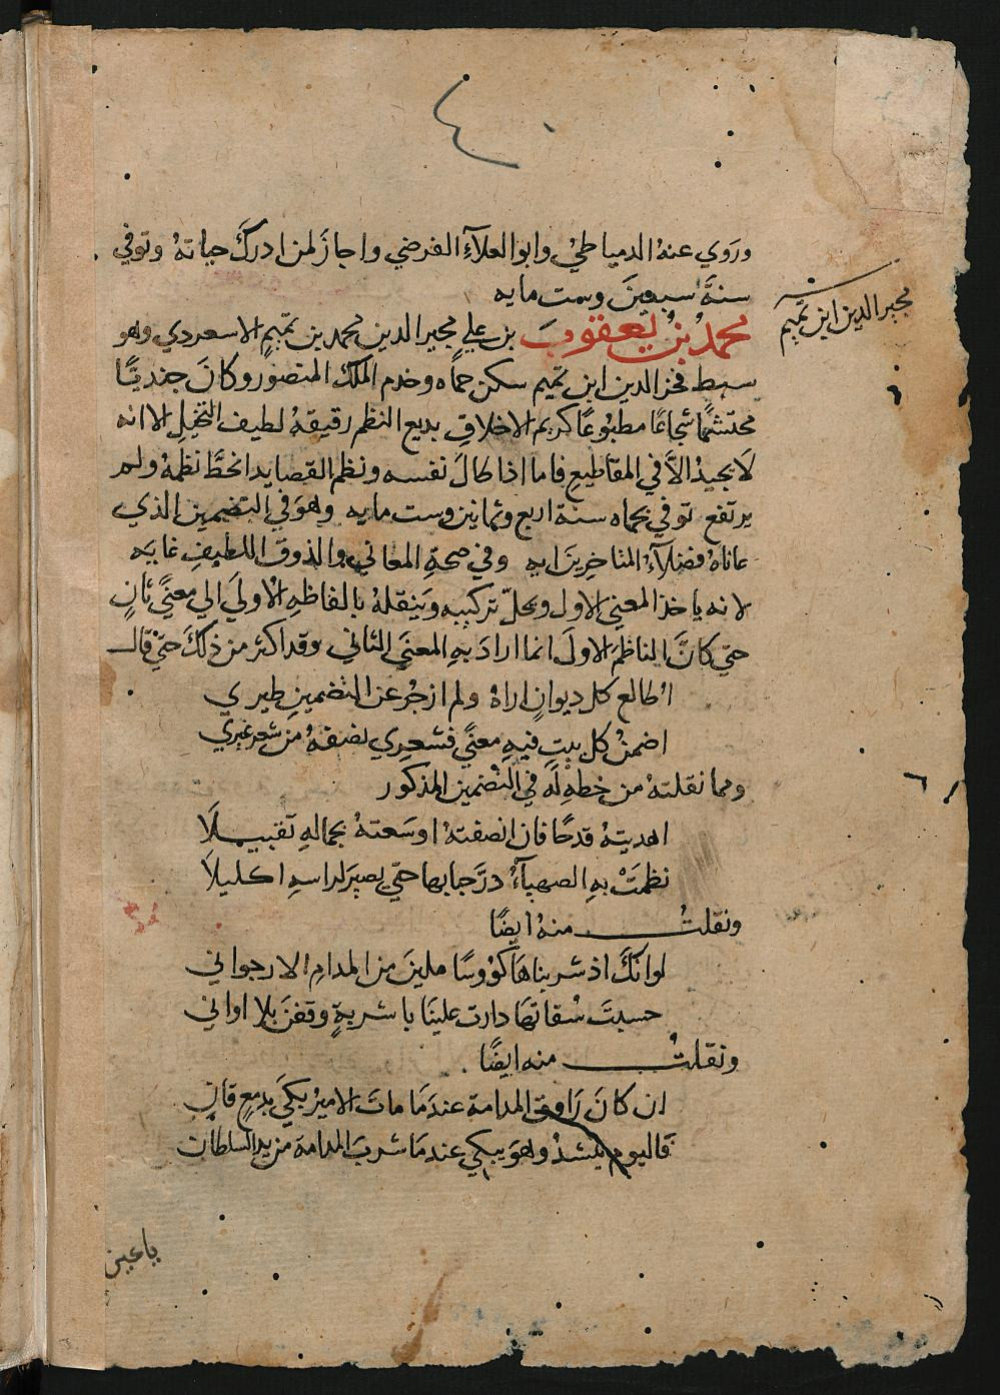 ٤
وروي عنهُ الدمياطيْ وابو العلآءِ الفرضي واجازَ لمن ادركَ حياتهُ وتوفي
سنةَ سبعينَ وست مايه
مجير الدين ابن تميم
محمدُ بنُ يعقوبَ بن علي مجير الدين محمد بن تميمٍ الاسعردي وهو
سبط فخر الدين ابن تميم سكن حماه وخدم الملك المنصور وكانَ جنديًا
محتشمًا شجاعًا مطبُوعًا كريم الاخلاقِ بديع النظم رقيقهُ لطيف التخيلِ الا انه
لَا يجيدُ الاَّ في المقاطيعِ فاما اذا طالَ نفسه ونظم القصايد انحطَّ نظمهُ ولم
يرتفع توفي بحماه سنة اربع وثمانين وست مايه وهوَ في التضمين الذي
عاناهُ فضلآءُ المتاخرِينَ ايه وفي صحةِ المعاني والذوق اللطيفِ غايَه
لانه ياخذ المعني الاول ويحلّ تركيبه وَينقلهُ بالفاظهِ الاوليَ الي معنيً ثانٍ
حتي كانَّ الناظمَ الاولَ انما ارادَ بهِ المعنَي الثاني وقد اكثر من ذلكَ حتيّ قال
اُطالع كل ديوانٍ اراهُ ولم ازجُر عن التضمينِ طيري
اضمنُ كل بيتٍ فيهِ معنيً فشعرِي نصفهُ من شعر غيري
ومما نقلتهُ من خطهِ لهُ في التضمين المذكور
اهديتهُ قدحًا فان انصفتهُ اوسَعتهُ بجمالهِ تقبيلَا
نظمَتْ بهِ الصهبآءُ درَّ حبابها حتي يصيرَ لراسهِ اكليلاَ
ونقلتُ منهُ ايضًا
لو انكَ اذ شربناهَا كؤوسًا ملينَ من المدامِ الارجواني
حسبتَ سُقاتهَا دارت علينَا باشربةٍ وقفنَ بلا اواني
ونقلتُ منه ايضًا
ان كانَ رَاووق المدامة عندَمَا ماتَ الاميرُ بكيَ بدمعٍ قانِ
فاليوم ينشدُ وهوَ يبكي عندمَا شربَ المدامة من يد السلطان
يا عين